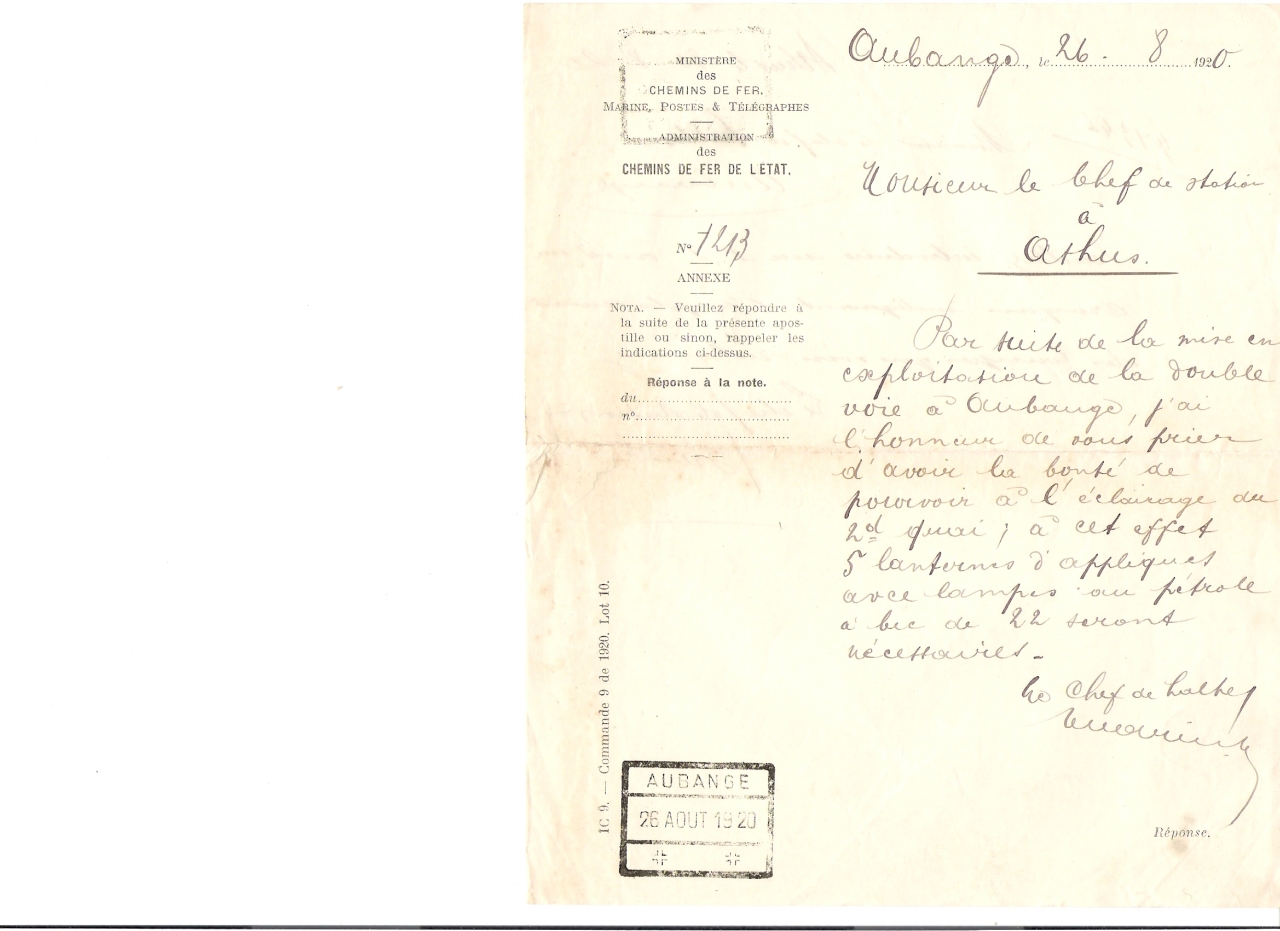 MINISTÈRE
des
CHEMINS DE FER,
MARINE, POSTES & TÉLÉGRAPHES
ADMINISTRATION
des
CHEMINS DE FER DE L'ÉTAT.
Nº 7213
ANNEXE
NOTA. — Veuillez répondre à
la suite de la présente apos-
tille ou sinon, rappeler les
indications ci-dessus.
Réponse à la note.
du
nº
1C 9. — Commande 9 de 1920. Lot 10.
AUBANGE
26 AOUT 1920
Aubange, le 26. 8 1920.
Monsieur le Chef de station
à
Athus.
Par suite de la mise en
exploitation de la double
voie à Aubange, j'ai
l'honneur de vous prier
d'avoir la bonté de
pourvoir à l'éclairage du
2d quai ; à cet effet
5 lanternes d'appliques
avec lampes au pétrole
à bec de 22 seront
nécessaires.
Le Chef de halte
Réponse.